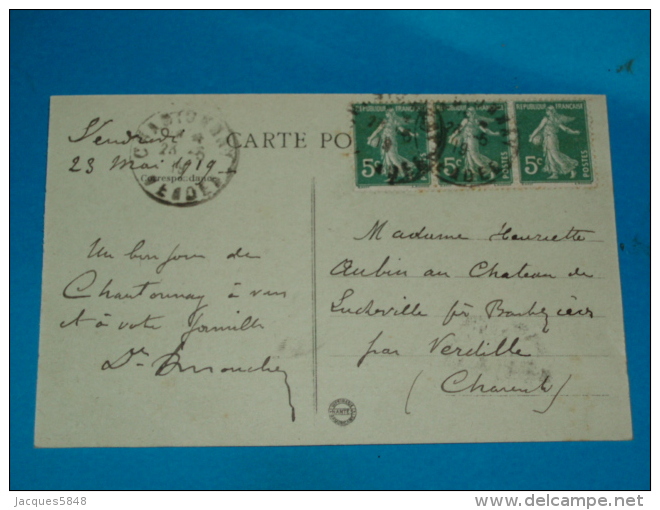 CARTE PO
Vendredi
23 Mai 1919
Correspondance
CHANTONNAY
VENDEE
REPUBLIQUE FRANÇAISE
5c
POSTES
REPUBLIQUE FRANÇAISE
5c
POSTES
REPUBLIQUE FRANÇAISE
5c
POSTES
Un bonjour de
Chantonnay à vous
et à votre famille
Dr
Madame Henriette
Aubin au Chateau de
Lucheville pr Barbezières
par Verdille
(Charente)
Jacques5848
www.delcampe.net